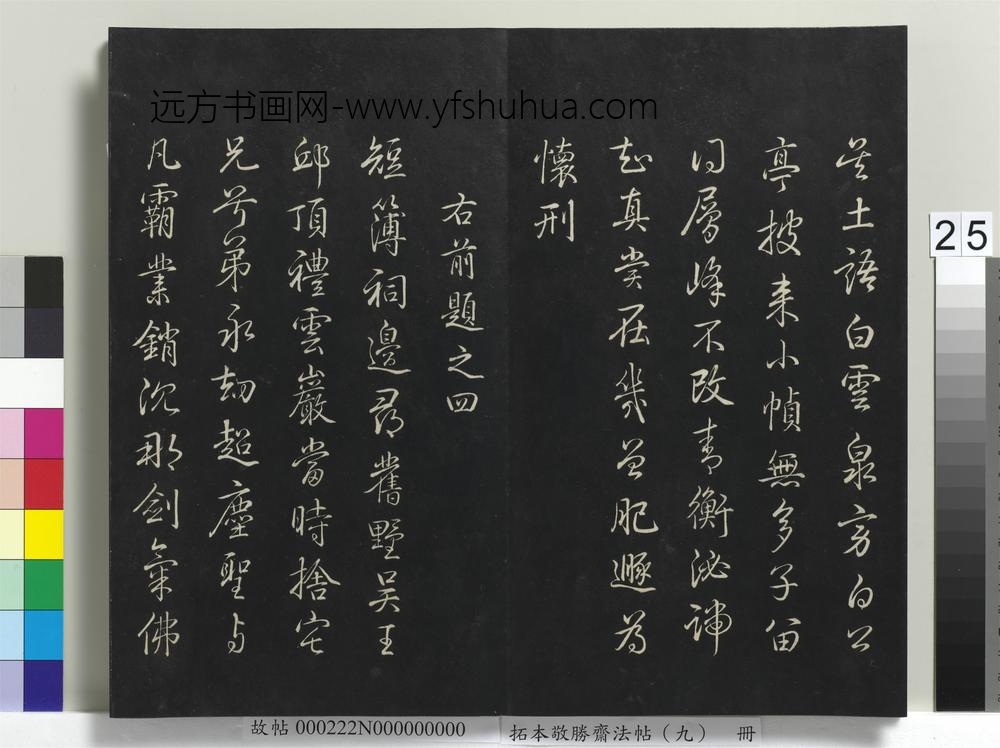 土語白雲泉方白公
亭披來小幀無多子留
同層峰不改青衡泌
真賞在幾曾肥遯為
懷刑
右前題之四
短簿祠邊尋舊墅吳王
邱頂禮雲巖當時捨宅
兄哥弟永劫超塵聖與
凡霸業銷沉那劍氣佛
远方书画网-www.yfshuhua.com
25
故帖 000222N000000000
拓本敬勝齋法帖（九） 冊